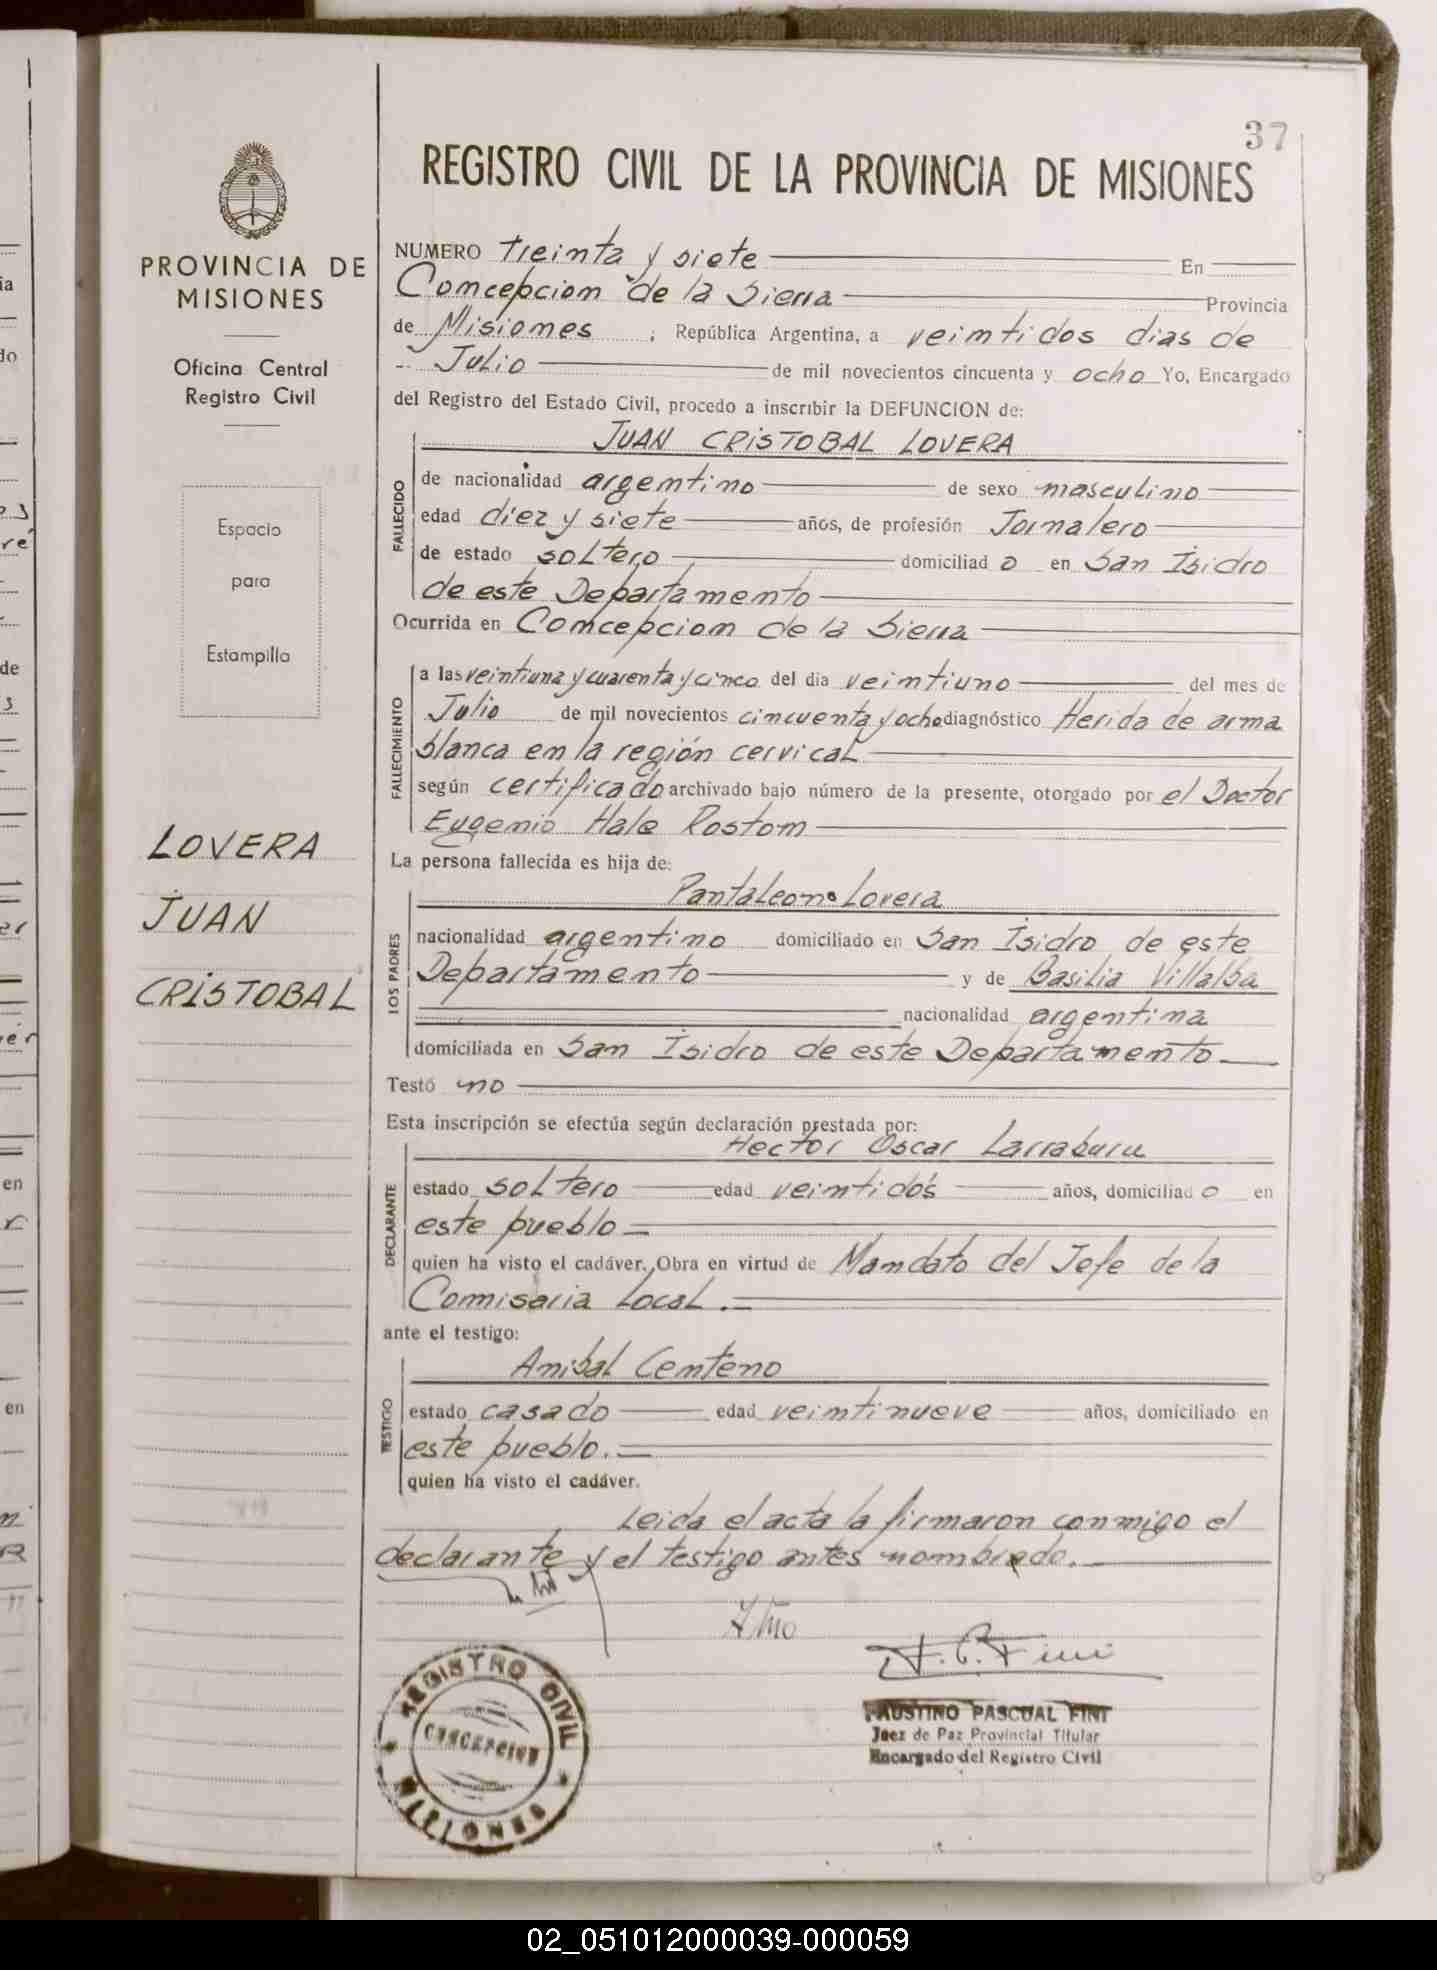 37
REGISTRO CIVIL DE LA PROVINCIA DE MISIONES
PROVINCIA DE
MISIONES
Oficina Central
Registro Civil
Espacio
para
Estampilla
LOVERA
JUAN
CRISTOBAL
NUMERO treinta y siete En
Comcepciom de la Sierra Provincia
de Misiomes ; República Argentina, a veimtidos dias de
Julio de mil novecientos cincuenta y ocho Yo, Encargado
del Registro del Estado Civil, procedo a inscribir la DEFUNCION de:
JUAN CRISTOBAL LOVERA
FALLECIDO
de nacionalidad argemtino de sexo masculino
edad diez y siete años, de profesión Jornalero
de estado soltero domiciliad o en San Isidro
de este Departamento
Ocurrida en Comcepciom de la Sierra
FALLECIMIENTO
a las veintiuna y cuarenta y cinco del dia veimtiuno del mes de
Julio de mil novecientos cincuenta y ocho diagnóstico Herida de arma
blanca em la región cervical
según certificado archivado bajo número de la presente, otorgado por el Doctor
Eugenio Hale Rostom
La persona fallecida es hija de:
Pantaleon Lovera
LOS PADRES
nacionalidad argentino domiciliado en San Isidro de este
Departamento y de Basilia Villalba
nacionalidad argentina
domiciliada en San Isidro de este Departamento
Testó no
Esta inscripción se efectúa según declaración prestada por:
Hector Oscar Larraburu
DECLARANTE
estado soltero edad veimtidós años, domiciliad o en
este pueblo
quien ha visto el cadáver. Obra en virtud de Mandato del Jefe de la
Comisaria Local.
ante el testigo:
Anibal Centeno
TESTIGO
estado casado edad veimtinueve años, domiciliado en
este pueblo.
quien ha visto el cadáver.
Leida el acta la firmaron conmigo el
declarante y el testigo antes nombrado.
F. P. Fini
REGISTRO CIVIL
CONCEPCION
MISIONES
FAUSTINO PASCUAL FINI
Juez de Paz Provincial Titular
Encargado del Registro Civil
02_051012000039-000059